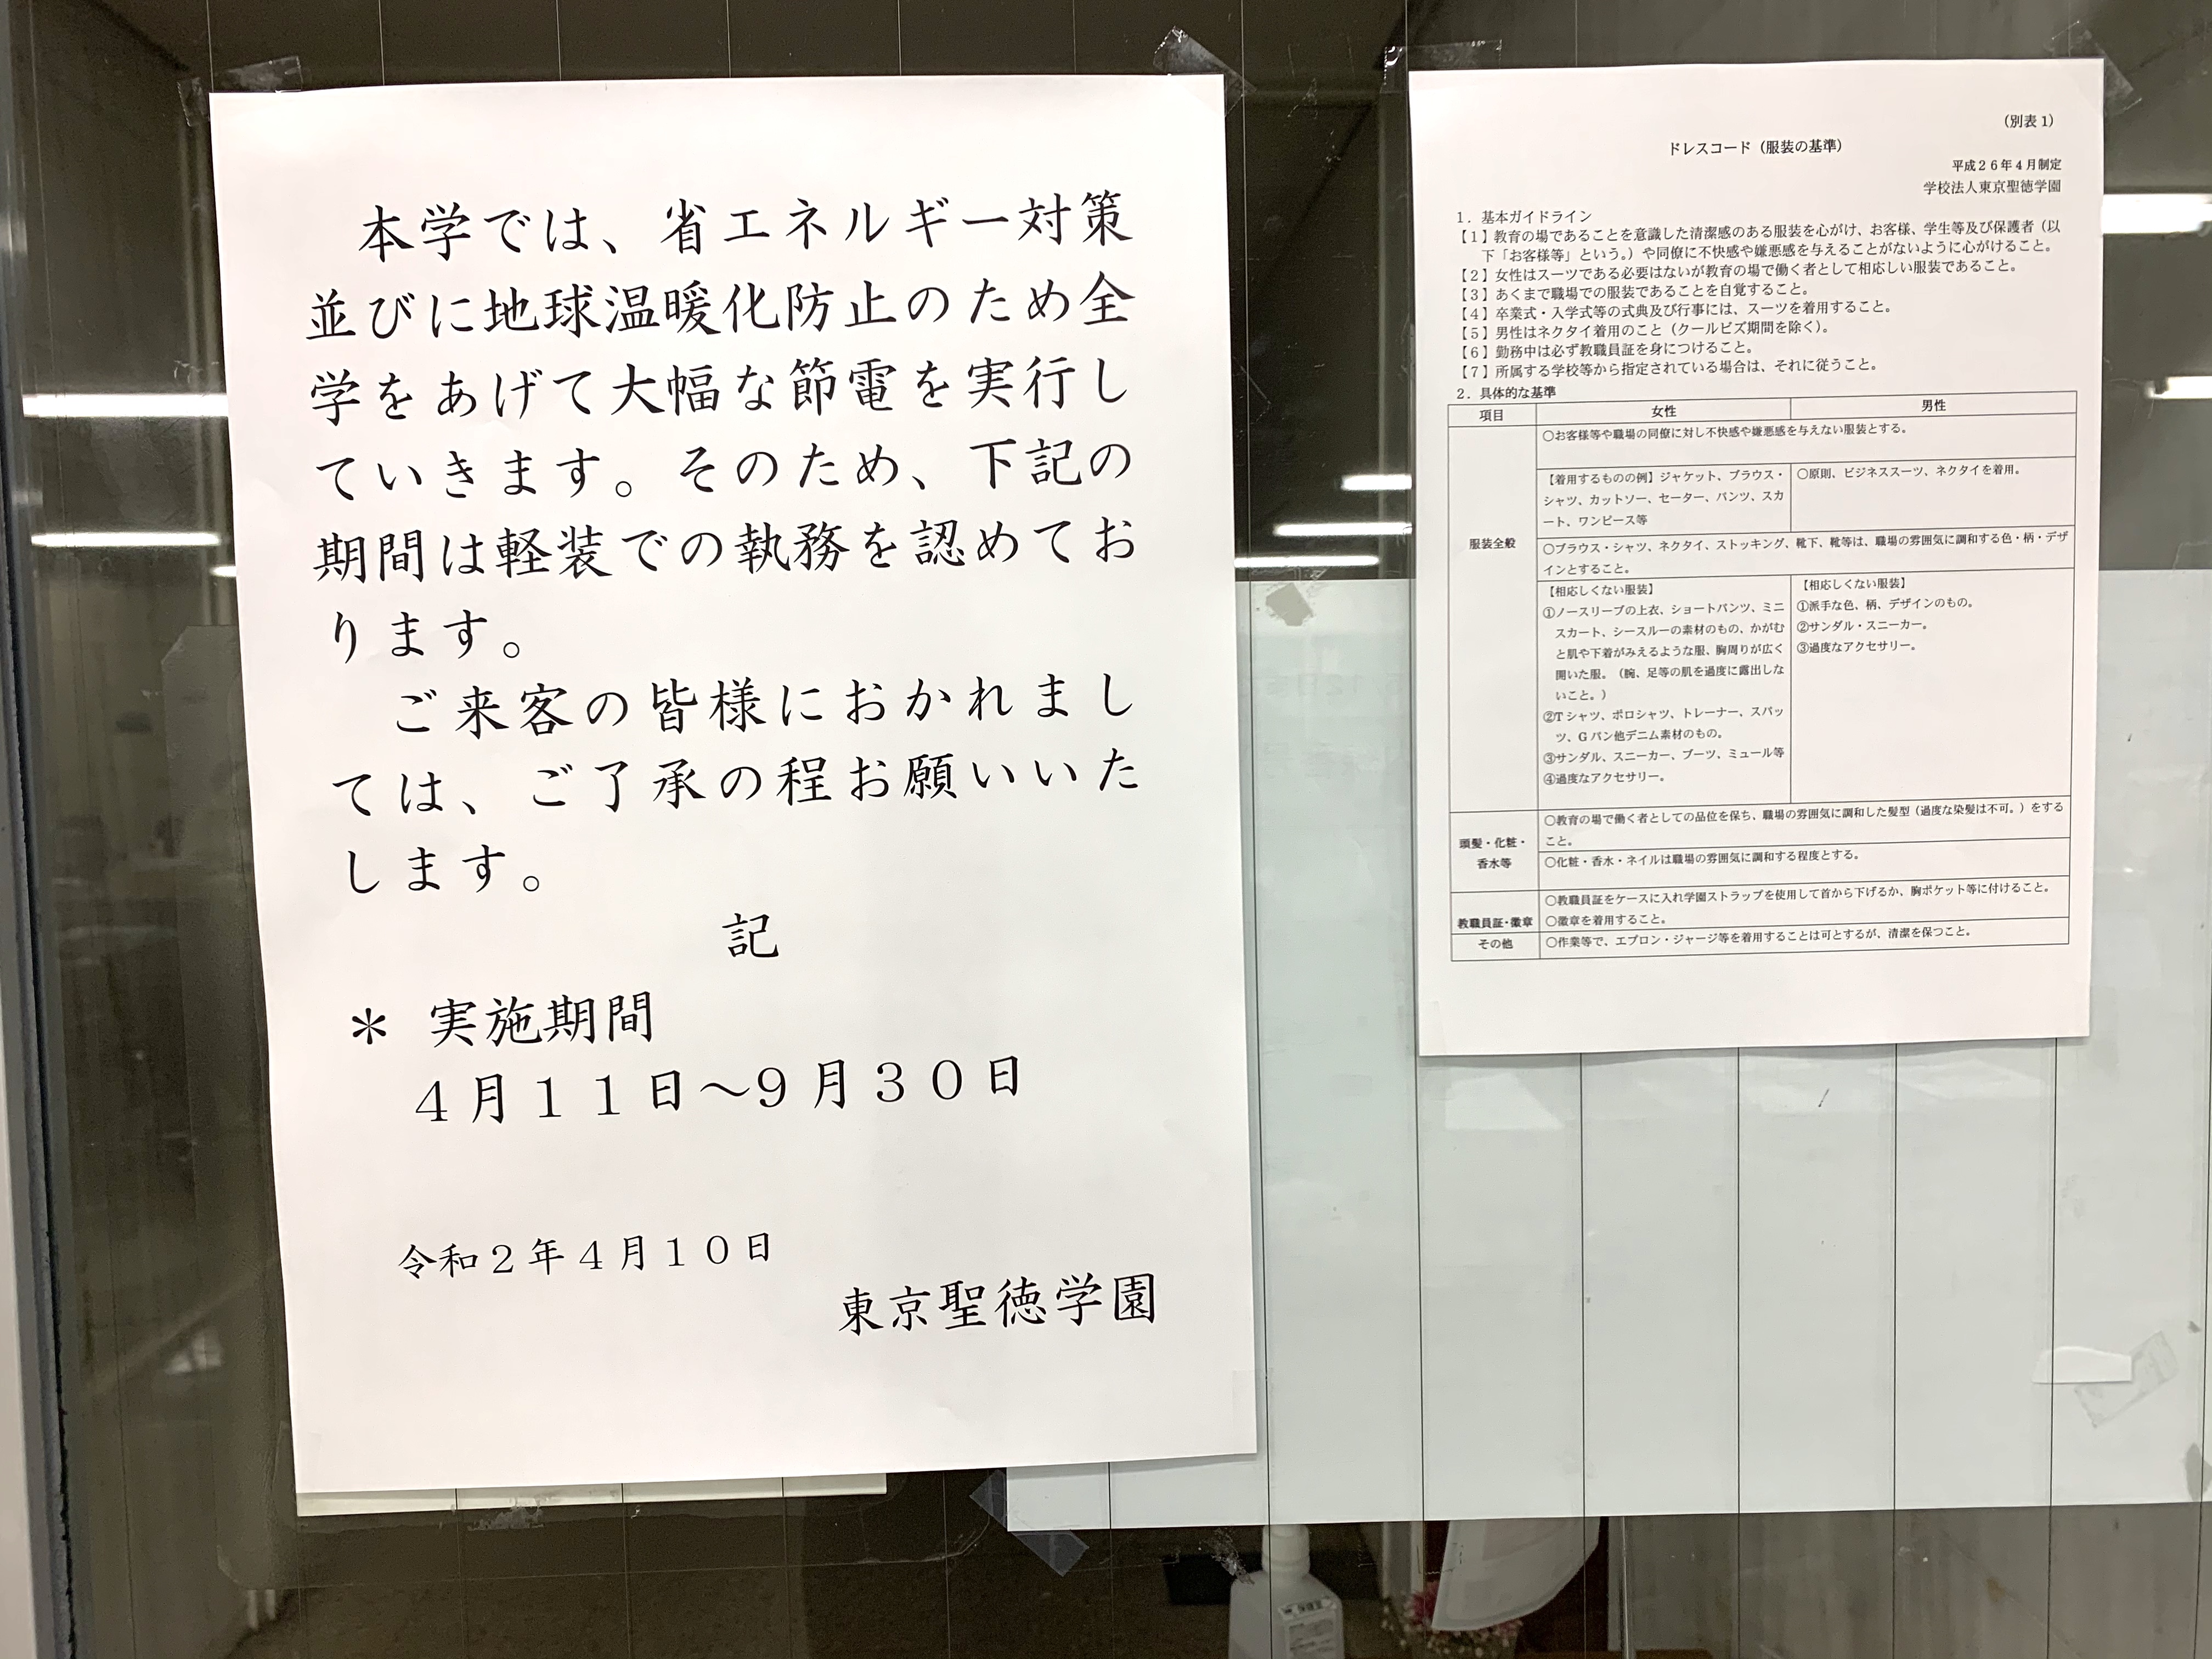 本学では、省エネルギー対策
並びに地球温暖化防止のため全
学をあげて大幅な節電を実行し
ていきます。そのため、下記の
期間は軽装での執務を認めてお
ります。
ご来客の皆様におかれまし
ては、ご了承の程お願いいた
します。
記
＊ 実施期間
４月１１日～９月３０日
令和２年４月１０日
東京聖徳学園
（別表１）
ドレスコード（服装の基準）
平成２６年４月制定
学校法人東京聖徳学園
１．基本ガイドライン
【１】教育の場であることを意識した清潔感のある服装を心がけ、お客様、学生等及び保護者（以
下「お客様等」という。）や同僚に不快感や嫌悪感を与えることがないように心がけること。
【２】女性はスーツである必要はないが教育の場で働く者として相応しい服装であること。
【３】あくまで職場での服装であることを自覚すること。
【４】卒業式・入学式等の式典及び行事には、スーツを着用すること。
【５】男性はネクタイ着用のこと（クールビズ期間を除く）。
【６】勤務中は必ず教職員証を身につけること。
【７】所属する学校等から指定されている場合は、それに従うこと。
２．具体的な基準
項目 女性 男性
服装全般
○お客様等や職場の同僚に対し不快感や嫌悪感を与えない服装とする。
【着用するものの例】ジャケット、ブラウス・
シャツ、カットソー、セーター、パンツ、スカ
ート、ワンピース等
○原則、ビジネススーツ、ネクタイを着用。
○ブラウス・シャツ、ネクタイ、ストッキング、靴下、靴等は、職場の雰囲気に調和する色・柄・デザ
インとすること。
【相応しくない服装】
①ノースリーブの上衣、ショートパンツ、ミニ
スカート、シースルーの素材のもの、かがむ
と肌や下着がみえるような服、胸周りが広く
開いた服。（腕、足等の肌を過度に露出しな
いこと。）
②Ｔシャツ、ポロシャツ、トレーナー、スパッ
ツ、Ｇパン他デニム素材のもの。
③サンダル、スニーカー、ブーツ、ミュール等
④過度なアクセサリー。
【相応しくない服装】
①派手な色、柄、デザインのもの。
②サンダル・スニーカー。
③過度なアクセサリー。
頭髪・化粧・
香水等
○教育の場で働く者としての品位を保ち、職場の雰囲気に調和した髪型（過度な染髪は不可。）をする
こと。
○化粧・香水・ネイルは職場の雰囲気に調和する程度とする。
教職員証・徽章
○教職員証をケースに入れ学園ストラップを使用して首から下げるか、胸ポケット等に付けること。
○徽章を着用すること。
その他
○作業等で、エプロン・ジャージ等を着用することは可とするが、清潔を保つこと。